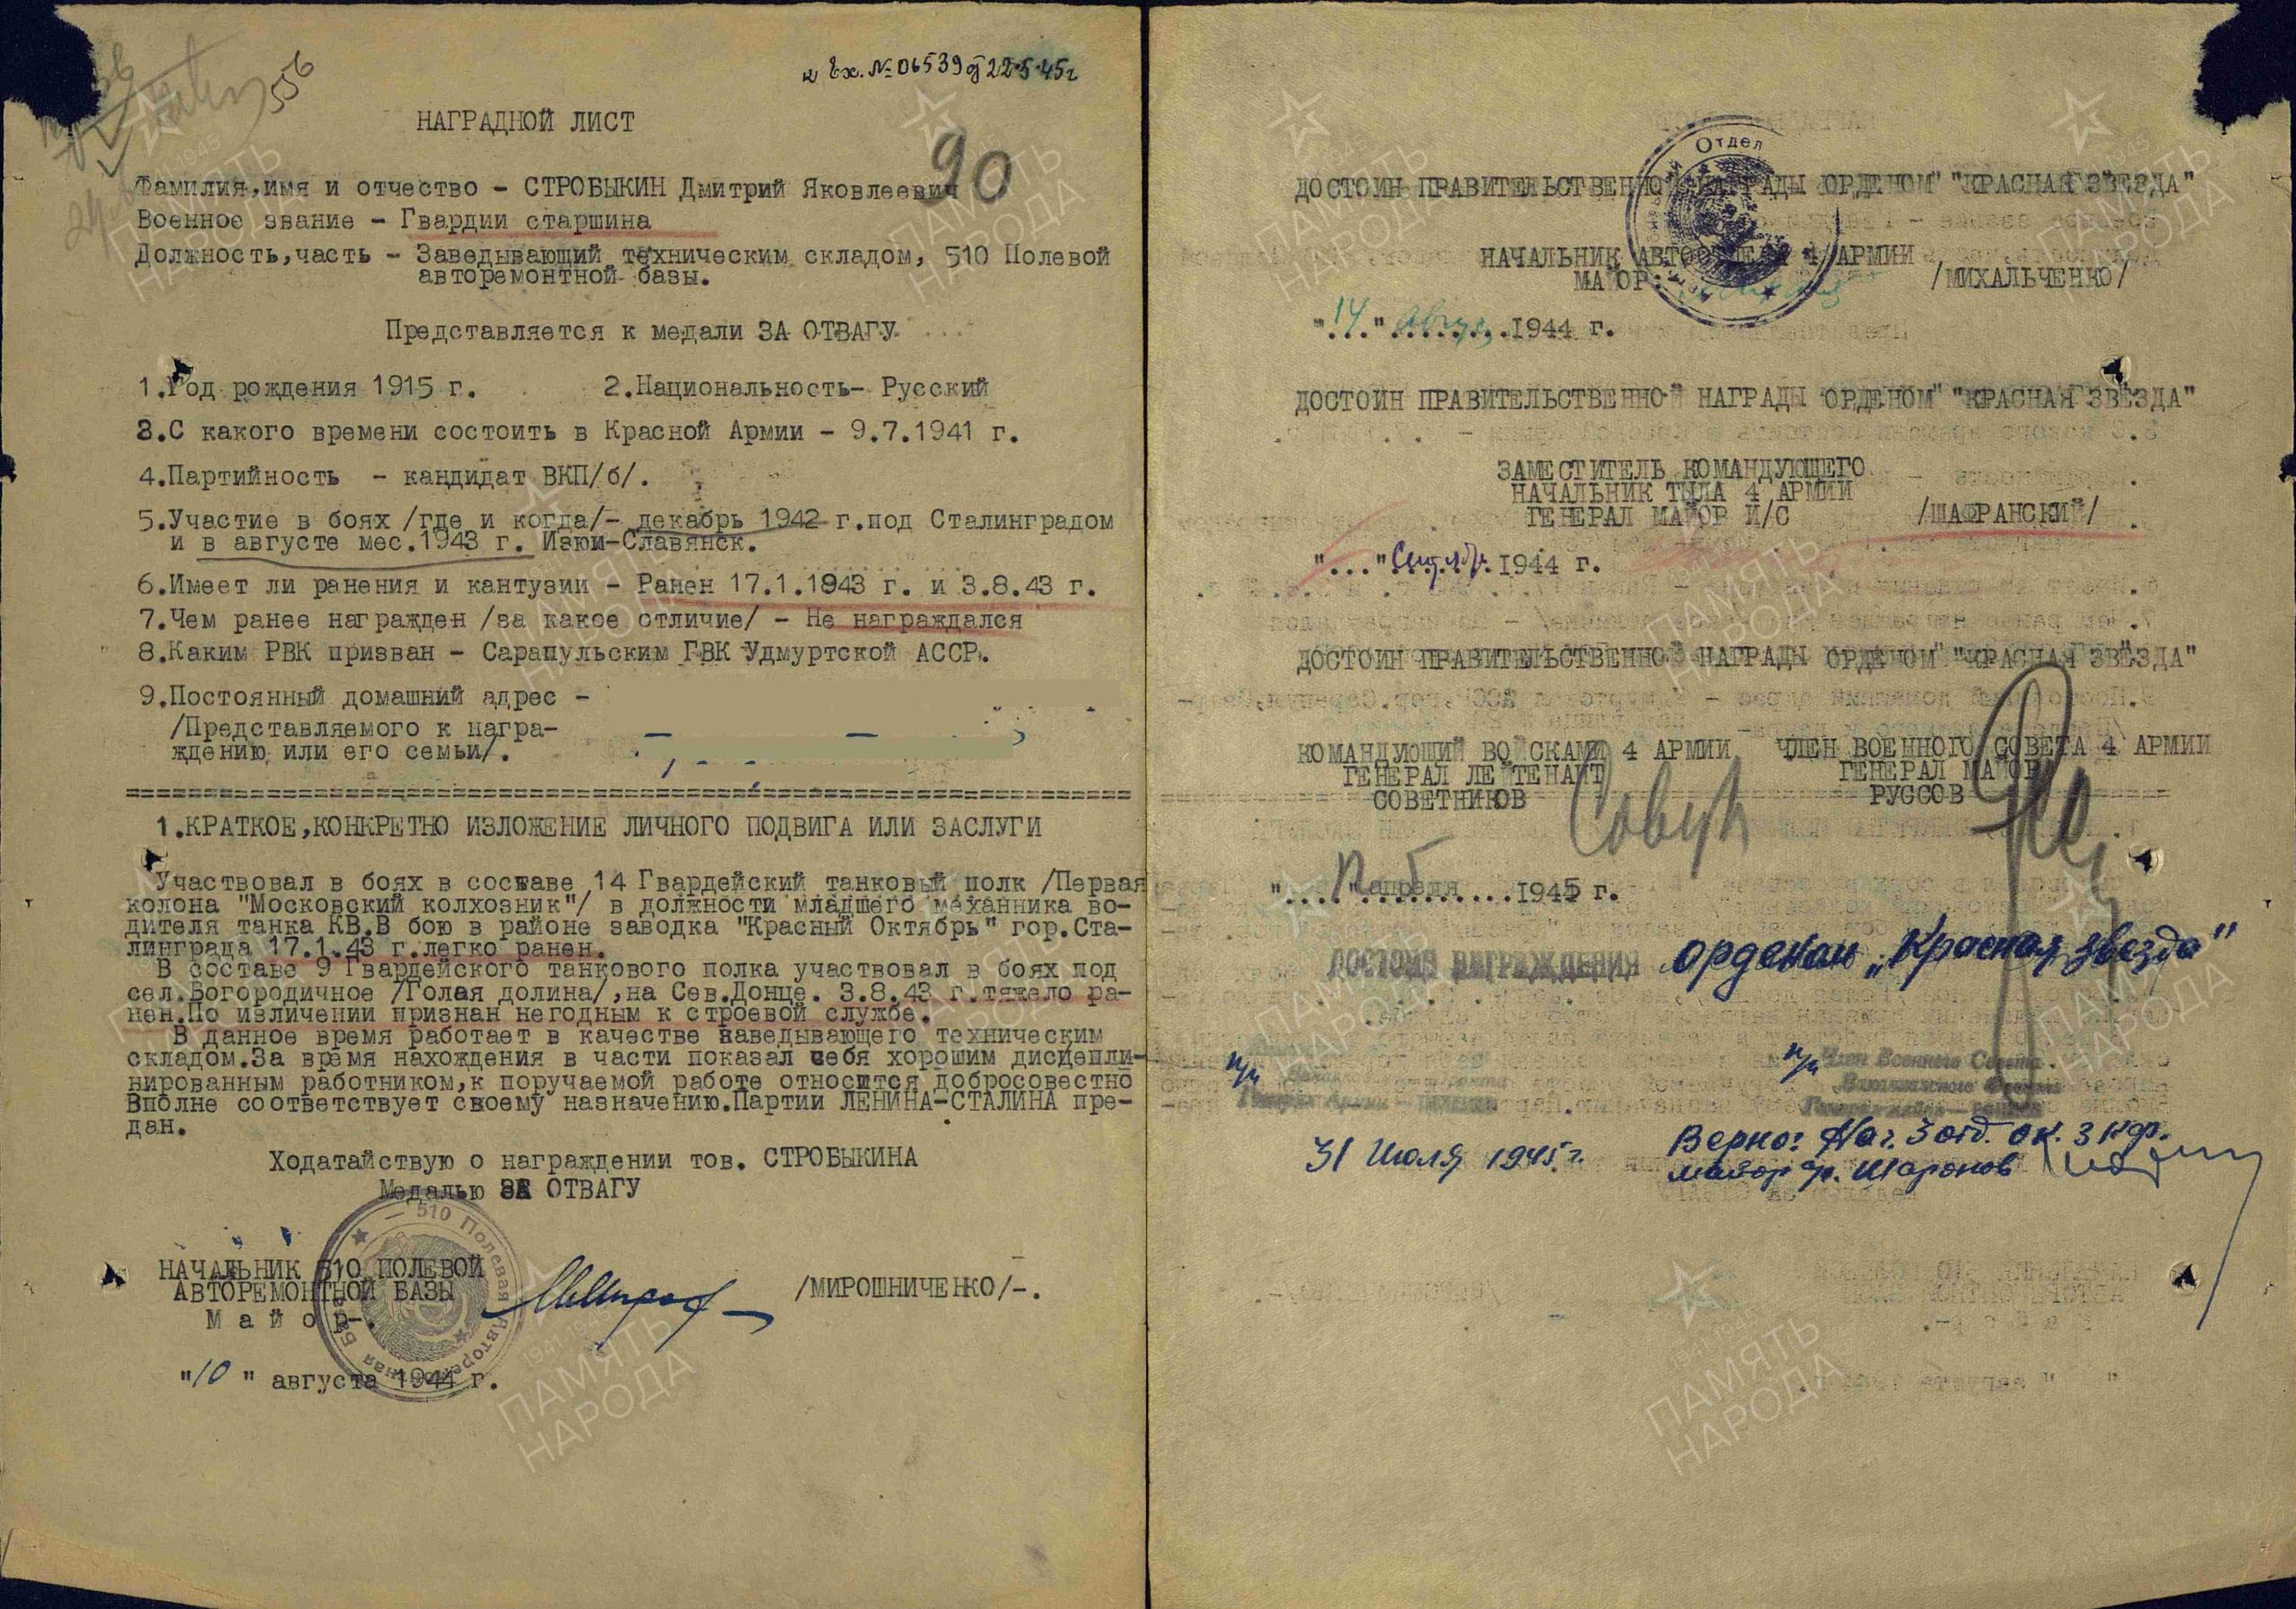 к Вх. № 06539 от 22.5.45г
556
НАГРАДНОЙ ЛИСТ
90
Фамилия,имя и отчество - СТРОБЫКИН Дмитрий Яковлеевич
Военное звание - Гвардии старшина
Должность,часть - Заведывающий техническим складом, 510 Полевой
авторемонтной базы.
Представляется к медали ЗА ОТВАГУ
1.Год рождения 1915 г. 2.Национальность- Русский
3.С какого времени состоить в Красной Армии - 9.7.1941 г.
4.Партийность - кандидат ВКП/б/.
5.Участие в боях /где и когда/- декабрь 1942 г.под Сталинградом
и в августе мес.1943 г. Изюм-Славянск.
6.Имеет ли ранения и кантузии - Ранен 17.1.1943 г. и 3.8.43 г.
7.Чем ранее награжден /за какое отличие/ - Не награждался
8.Каким РВК призван - Сарапульским ГВК Удмуртской АССР.
9.Постоянный домашний адрес -
/Представляемого к награ-
ждению или его семьи/.
1.КРАТКОЕ,КОНКРЕТНО ИЗЛОЖЕНИЕ ЛИЧНОГО ПОДВИГА ИЛИ ЗАСЛУГИ
Участвовал в боях в составе 14 Гвардейский танковый полк /Первая
колона "Московский колхозник"/ в должности младшего механника во-
дителя танка КВ.В бою в районе заводка "Красный Октябрь" гор.Ста-
линграда 17.1.43 г.легко ранен.
В составе 9 Гвардейского танкового полка участвовал в боях под
сел.Богородичное /Голая долина/,на Сев.Донце. 3.8.43 г.тяжело ра-
нен.По изличении признан негодным к строевой службе.
В данное время работает в качестве заведывающего техническим
складом.За время нахождения в части показал себя хорошим дисцепли-
нированным работником,к поручаемой работе относится добросовестно
Вполне соответствует своему назначению.Партии ЛЕНИНА-СТАЛИНА пре-
дан.
Ходатайствую о награждении тов. СТРОБЫКИНА
Медалью ЗА ОТВАГУ
НАЧАЛЬНИК 510 ПОЛЕВОЙ
АВТОРЕМОНТНОЙ БАЗЫ
Майор-. /МИРОШНИЧЕНКО/-.
510 Полевая Авторемонтная База
"10" августа 1944 г.
Отдел
ДОСТОИН ПРАВИТЕЛЬСТВЕННОЙ НАГРАДЫ ОРДЕНОМ "КРАСНАЯ ЗВЕЗДА"
НАЧАЛЬНИК АВТООТДЕЛА 4 АРМИИ
МАЙОР: /МИХАЛЬЧЕНКО/
"14" август 1944 г.
ДОСТОИН ПРАВИТЕЛЬСТВЕННОЙ НАГРАДЫ ОРДЕНОМ "КРАСНАЯ ЗВЁЗДА"
ЗАМЕСТИТЕЛЬ КОМАНДУЮЩЕГО
НАЧАЛЬНИК ТЫЛА 4 АРМИИ
ГЕНЕРАЛ МАЙОР И/С /ШАФРАНСКИЙ/
"..." Сентябр. 1944 г.
ДОСТОИН ПРАВИТЕЛЬСТВЕННОЙ НАГРАДЫ ОРДЕНОМ "КРАСНАЯ ЗВЁЗДА"
КОМАНДУЮЩИЙ ВОЙСКАМИ 4 АРМИИ ЧЛЕН ВОЕННОГО СОВЕТА 4 АРМИИ
ГЕНЕРАЛ ЛЕЙТЕНАНТ ГЕНЕРАЛ МАЙОР
СОВЕТНИКОВ РУССОВ
апреля 1945 г.
ДОСТОИН НАГРАЖДЕНИЯ орденом „Красная звезда"
п/п п/п Член Военного Совета
31 Июля 1945 г. Верно: Нач. 3 отд. ок. 3 кдр.
майор Шаронов
ПАМЯТЬ НАРОДА
1941-1945